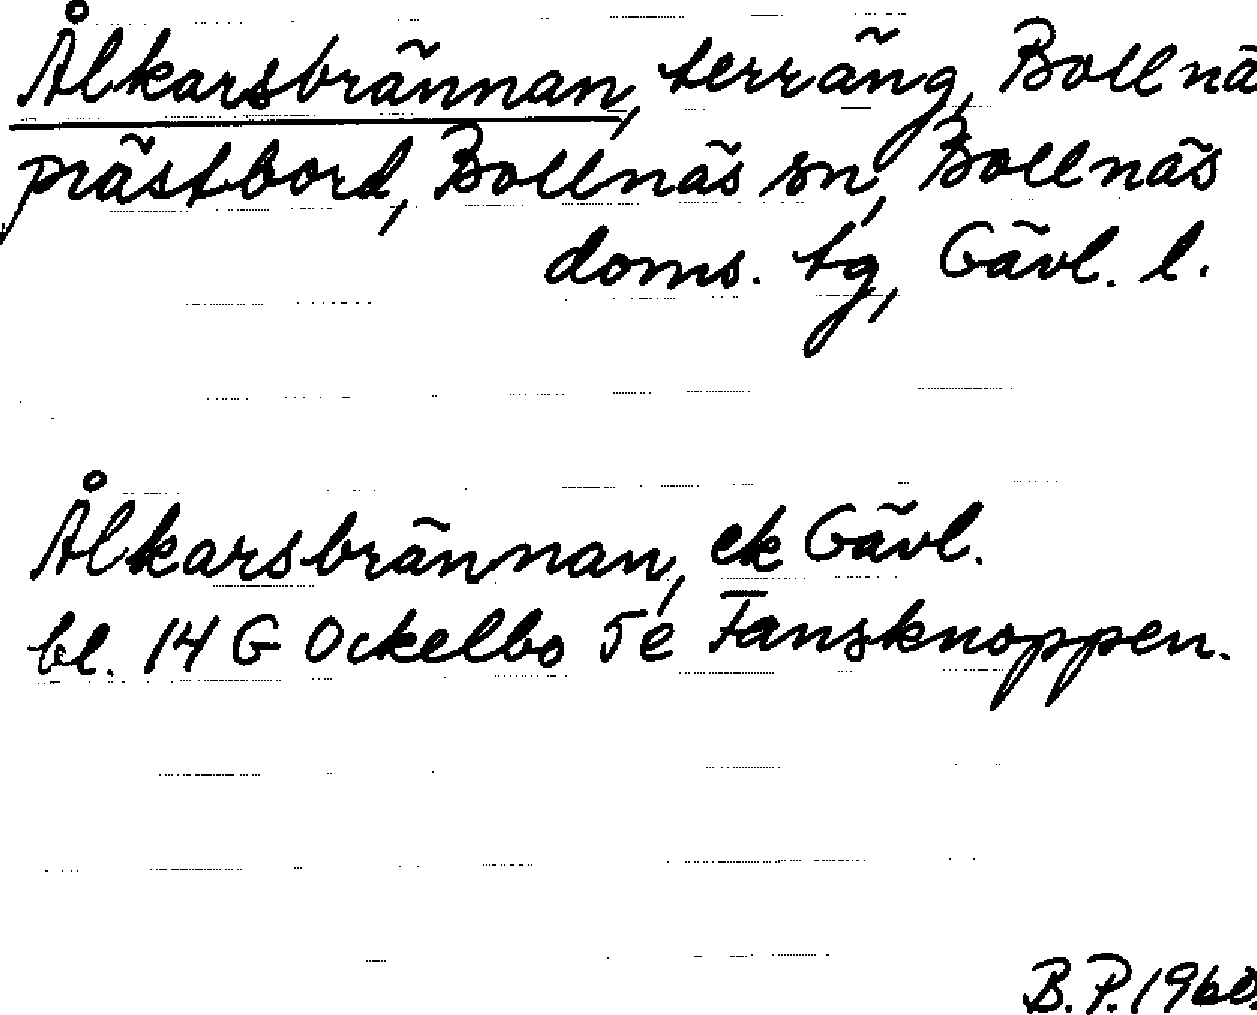 Ålkarsbrännan, terräng, Bollnä
prästbord, Bollnäs sn, Bollnäs
doms. tg, Gävl. l.
Ålkarsbrännan, ek Gävl.
bl. 14 G Ockelbo 5e Fansknoppen.
B.P. 1960.